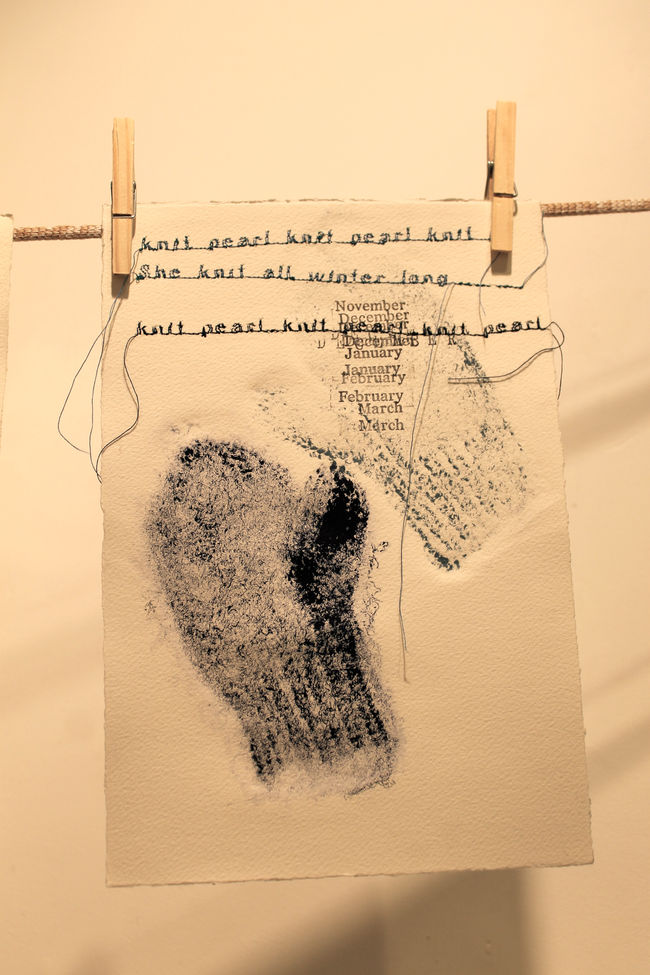 knit pearl knit pearl knit
She knit all winter long
knit pearl knit pearl knit pearl
November
December
December
DECEMBER
January
January
February
February
March
March